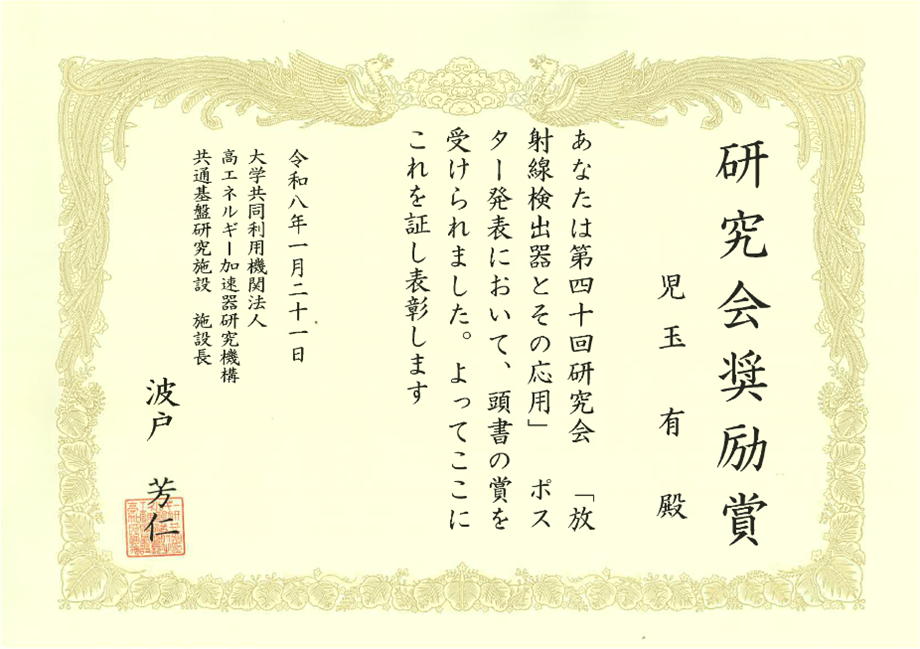 研究会奨励賞
児玉 有 殿
あなたは第四十回研究会 「放
射線検出器とその応用」 ポス
ター発表において、頭書の賞を
受けられました。よってここに
これを証し表彰します
令和八年一月二十一日
大学共同利用機関法人
高エネルギー加速器研究機構
共通基盤研究施設 施設長
波戸 芳仁